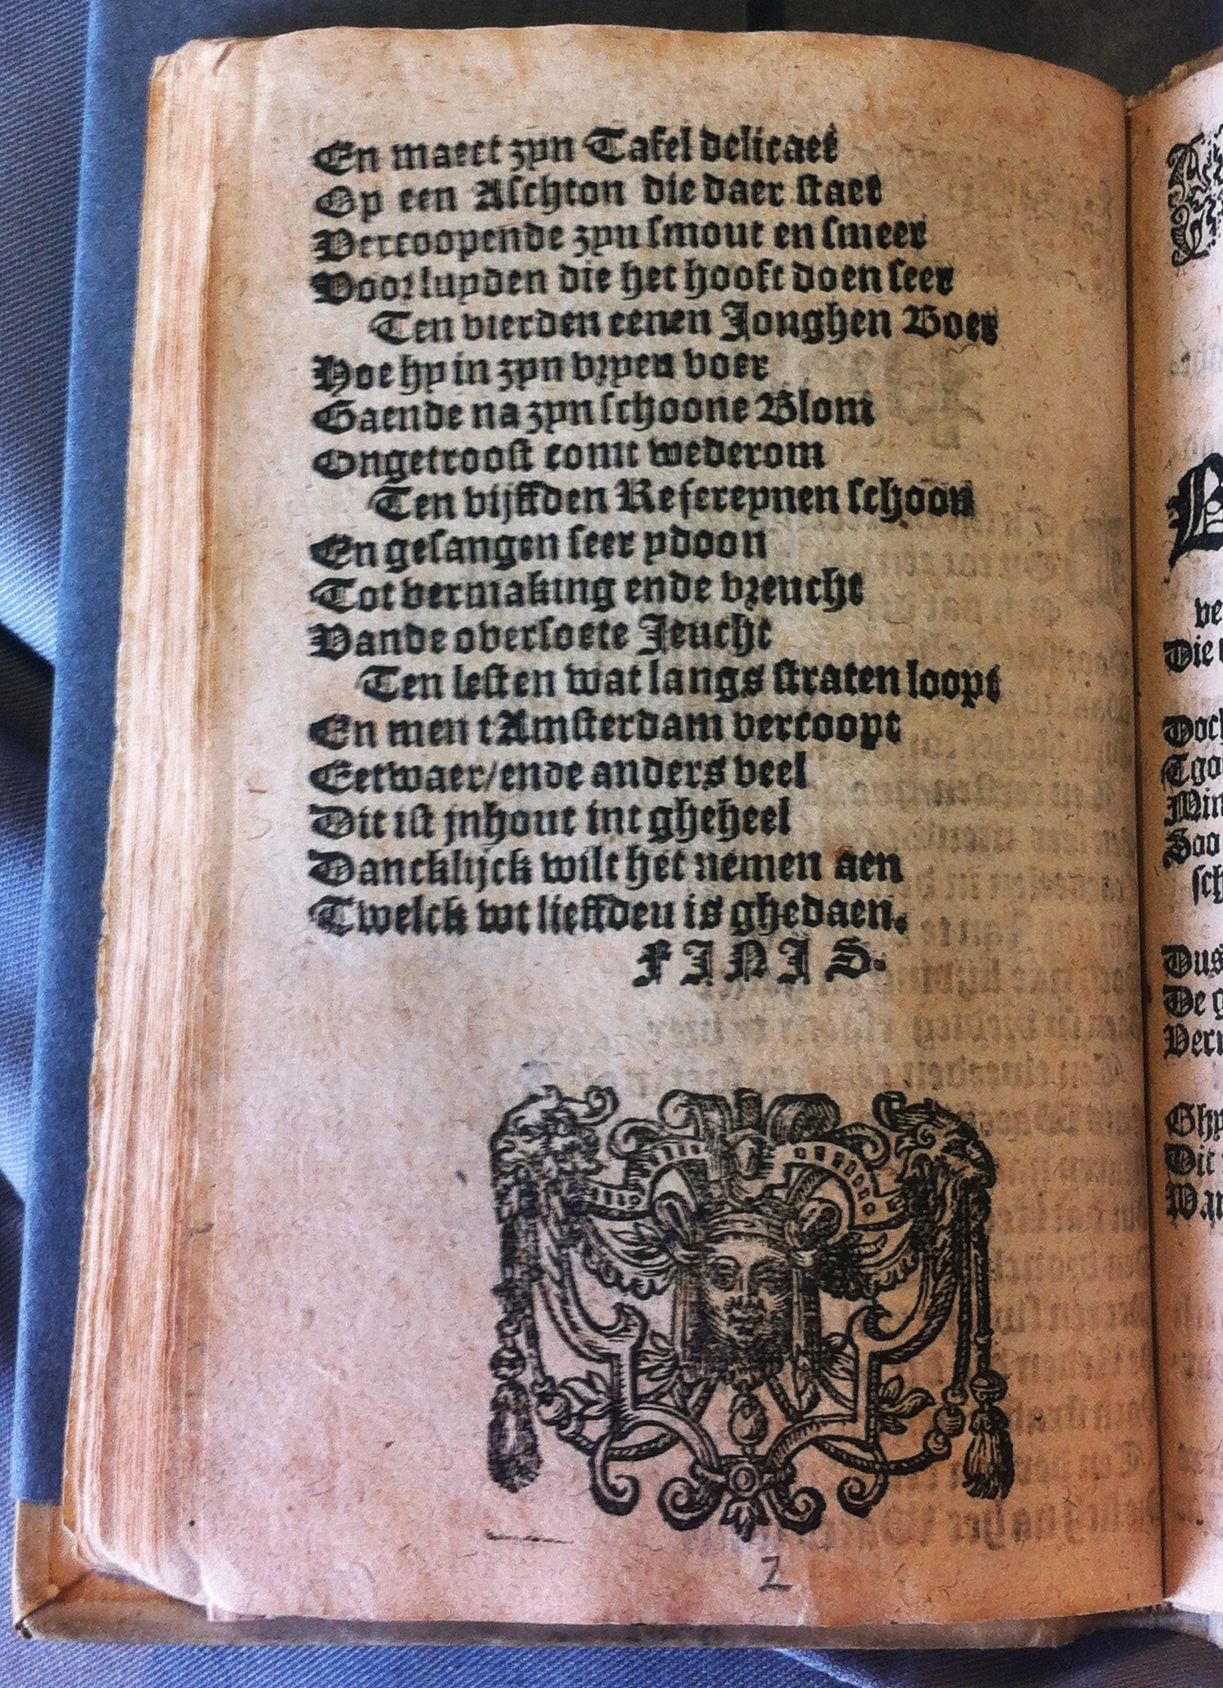 En maect zyn Tafel delicaet
Op een Aschton die daer staet
Vercoopende zyn smout en smeer
Voor luyden die het hooft doen seer
Ten vierden eenen Jonghen Boer
Hoe hy in zyn vryen voer
Gaende na zyn schoone Blom
Ongetroost comt wederom
Ten vijffden Refereynen schoon
En gesangen seer ydoon
Tot vermaking ende vreucht
Vande oversoete Jeucht
Ten lesten wat langs straten loopt
En men tAmsterdam vercoopt
Eetwaer/ende anders veel
Dit ist jnhout int gheheel
Dancklijck wilt het nemen aen
Twelck wt lieffden is ghedaen.
FINIS.
2
ve
Die
Doch
Tgo
Min
Soo
sch
Dus
De g
Ghy
Dit